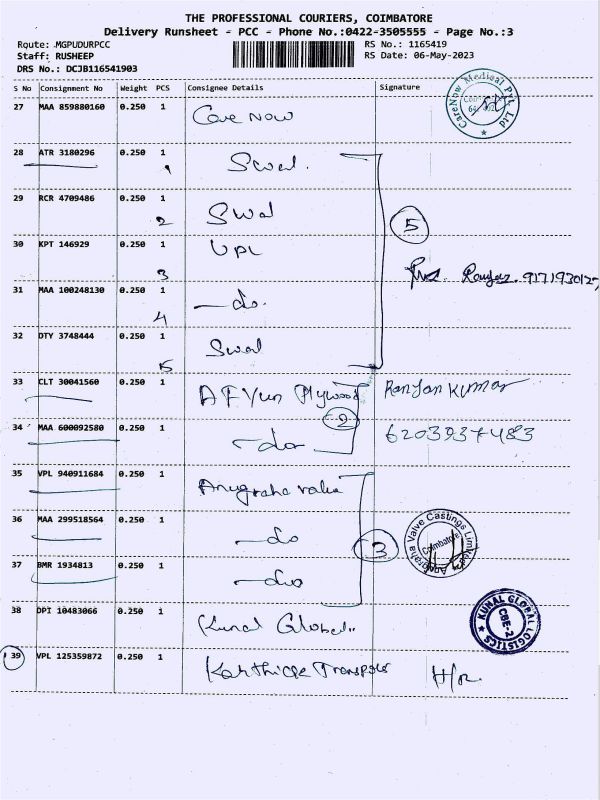 THE PROFESSIONAL COURIERS, COIMBATORE
Delivery Runsheet - PCC - Phone No.:0422-3505555 - Page No.:3
Route: MGPUDURPCC RS No.: 1165419
Staff: RUSHEEP RS Date: 06-May-2023
DRS No.: DCJB116541903
S No Consignment No Weight PCS Consignee Details Signature
27 MAA 859880160 0.250 1 Care Now
CareNow Medical Pvt. Ltd
28 ATR 3180296 0.250 1 Swal.
1
29 RCR 4709486 0.250 1 Swal
2 5
30 KPT 146929 0.250 1 UPL
3
31 MAA 100248130 0.250 1 —do.
4
32 DTY 3748444 0.250 1 Swal
5
33 CLT 30041560 0.250 1 Plywood Ranjan Kumar
2
34 MAA 600092580 0.250 1 —do 6203937483
35 VPL 940911684 0.250 1 Anugraha valve
36 MAA 299518564 0.250 1 —do
3
Anugraha Valve Castings Limited
Coimbatore
37 BMR 1934813 0.250 1 —do
38 DPI 10483066 0.250 1 Kunal Global..
KUNAL GLOBAL LOGISTICS
CBE-2
39 VPL 125359872 0.250 1 Karthick Transport H/R.